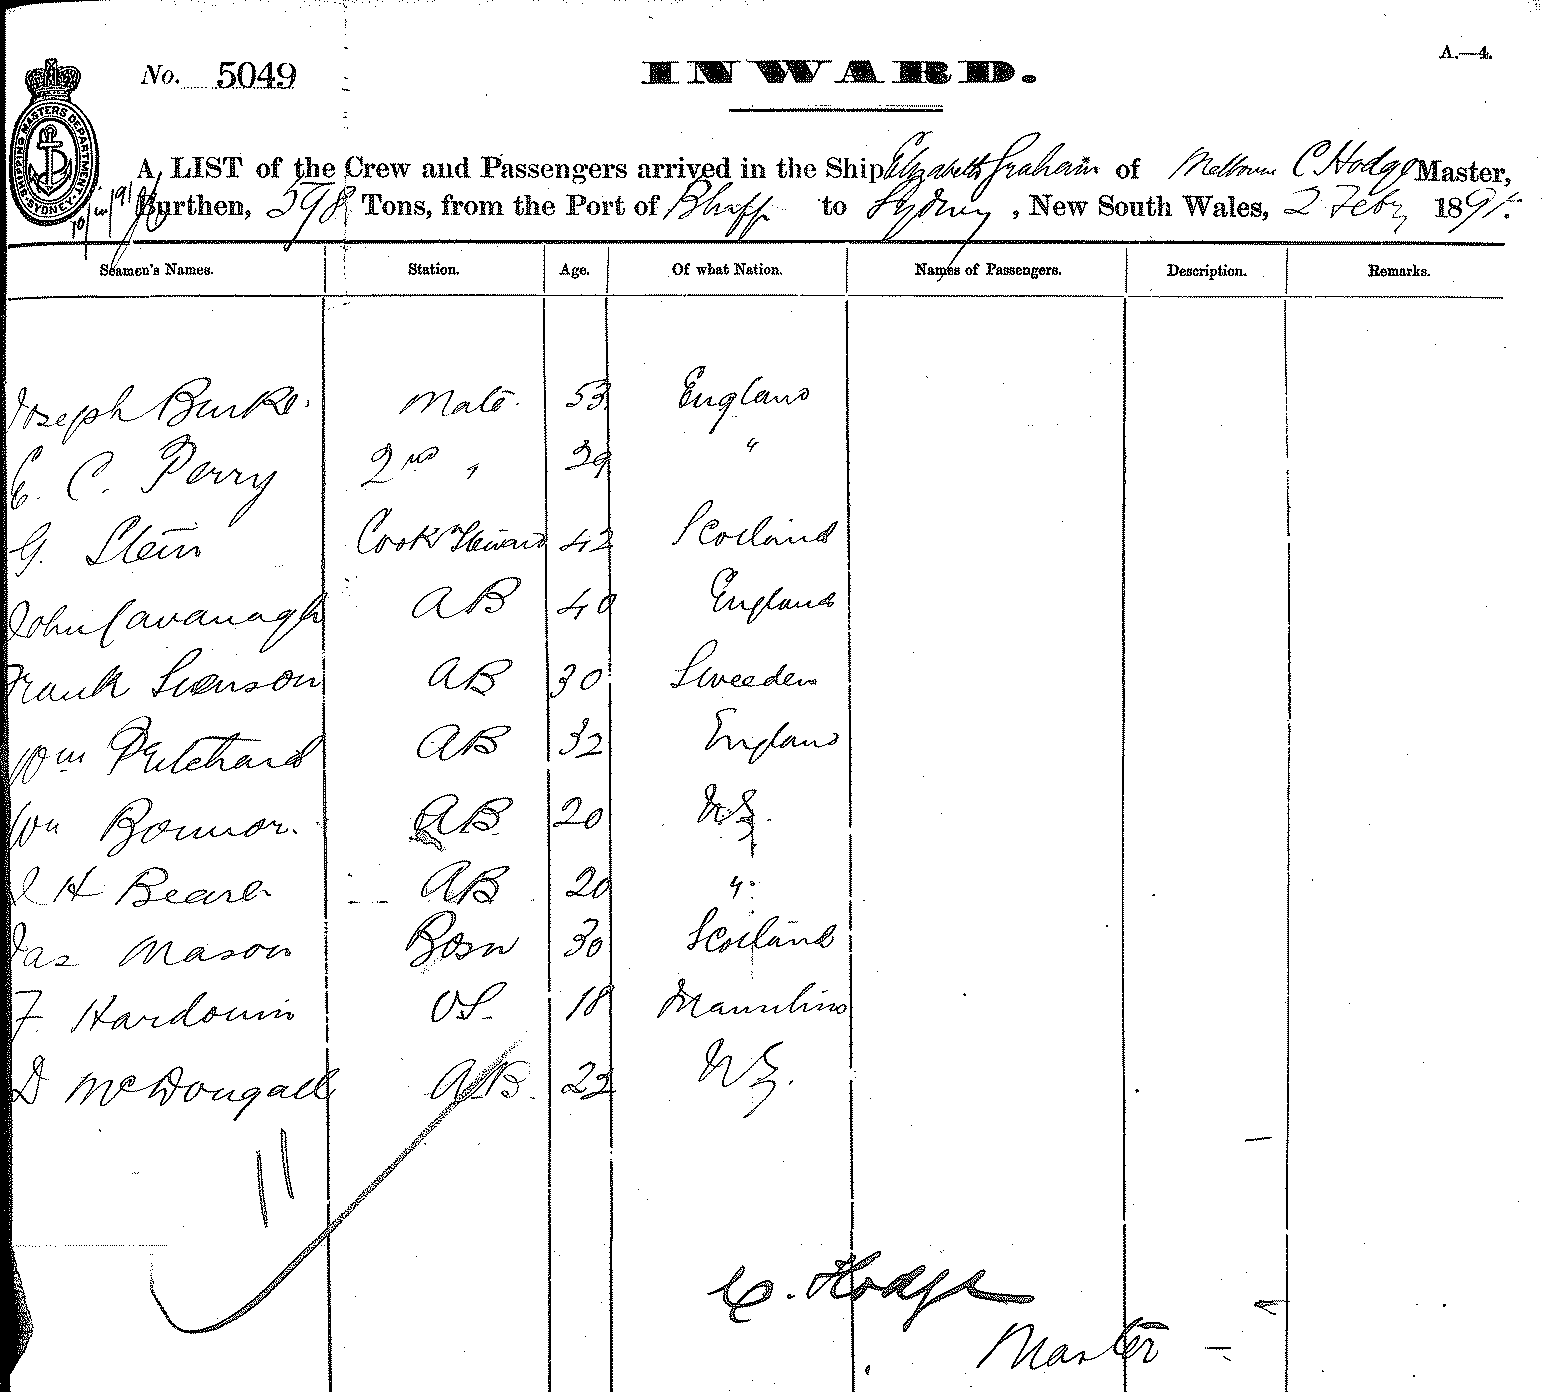 A.—4.
No. 5049
INWARD.
SHIPPING MASTERS DEPARTMENT SYDNEY
A LIST of the Crew and Passengers arrived in the Ship Elizabeth Graham of Melbourne C Hodge Master,
Burthen, 598 Tons, from the Port of Bluff to Sydney, New South Wales, 2 Feby 1891.
Seamen's Names. Station. Age. Of what Nation. Names of Passengers. Description. Remarks.
Joseph Burke. Mate. 53 England
E. C. Perry 2nd " 29 "
G. Stein Cook & Steward 42 Scotland
John Cavanagh AB 40 England
Frank Swenson AB 30 Sweeden
Wm Pritchard AB 32 England
Wm Bonnor. AB 20 NZ.
H AB 20 "
Jas Mason Bosn 30 Scotland
F. Hardouin OS. 18 Mauritius
D McDougall AB. 22 NZ.
11
C. Hodge
Master